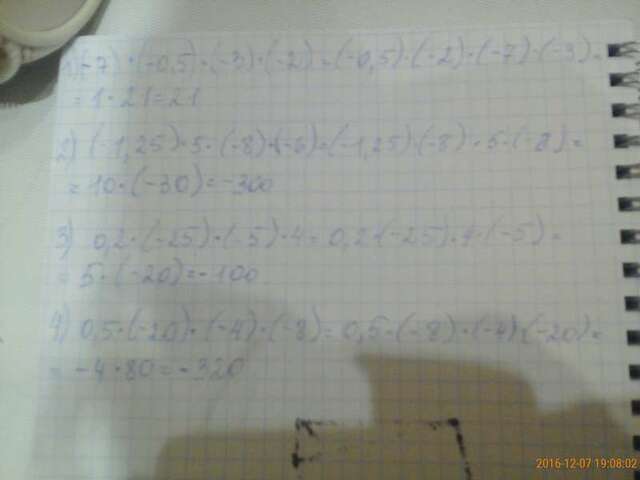 1) (-7)·(-0,5)·(-3)·(-2)=(-0,5)·(-2)·(-7)·(-3)=
= 1·21=21
2) (-1,25)·5·(-8)·(-6)=(-1,25)·(-8)·5·(-6)=
= 10·(-30)=-300
3) 0,2·(-25)·(-5)·4=0,2·(-25)·4·(-5)=
= 5·(-20)=-100
4) 0,5·(-20)·(-4)·(-8)=0,5·(-8)·(-4)·(-20)=
= -4·80=-320
2016-12-07 19:08:02